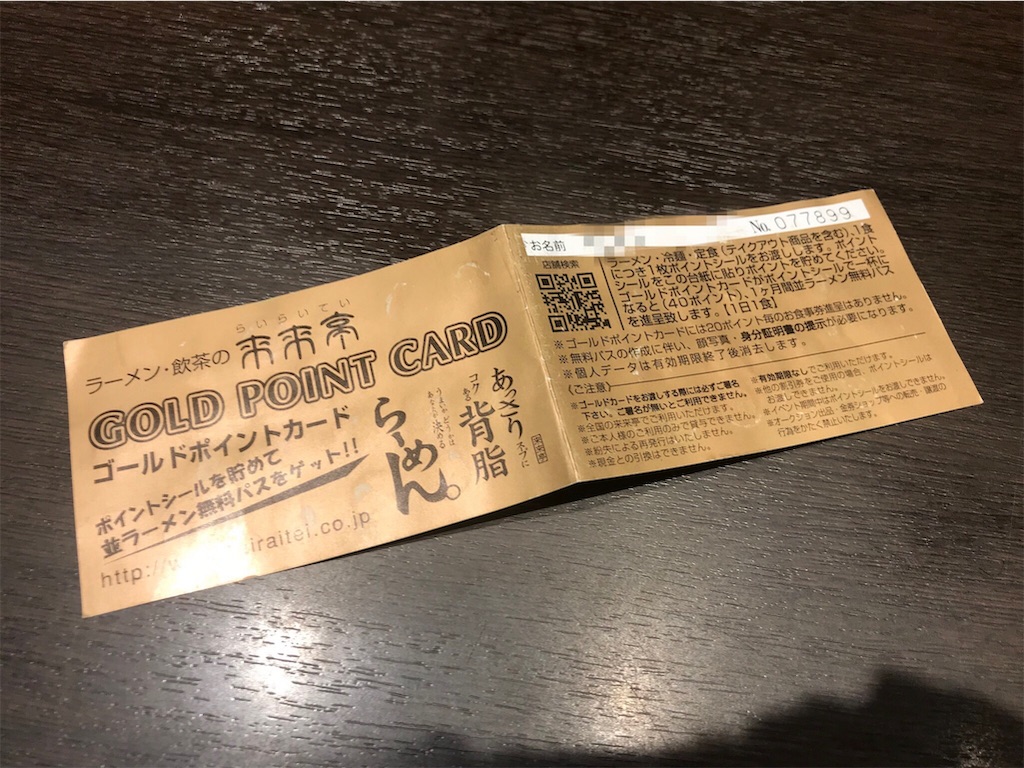 らいらいてい
ラーメン・飲茶の 来来亭
GOLD POINT CARD
ゴールドポイントカード
ポイントシールを貯めて
並ラーメン無料パスをゲット!!
http://
iraitei.co.jp
あっさりスープに
コクある背脂
らーめん。
来来亭
お名前
No. 077899
店舗検索
ラーメン・冷麺・定食(テイクアウト商品を含む)、1食
につき1枚ポイントシールをお渡しします。ポイント
シールをこの台紙に貼りポイントを貯めてください。
ゴールドポイントカードがポイントシールで一杯に
なると(40ポイント)、1ヶ月間並ラーメン無料パス
を進呈致します。【1日1食】
※ゴールドポイントカードには20ポイント毎のお食事券進呈はありません。
※無料パスの作成に伴い、顔写真・身分証明書の提示が必要になります。
※個人データは有効期限終了後消去します。
〈ご注意〉
※ゴールドカードをお渡しする際には必ずご署名
下さい、ご署名が無いとご利用できません。
※全国の来来亭でご利用いただけます。
※ご本人様のご利用のみで貸与できません。
※紛失による再発行はいたしません。
※現金との引換はできません。
※有効期限なしでご利用いただけます。
※他の割引券をご使用の場合、ポイントシールは
お渡しできません。
※イベント期間中はポイントシールをお渡しできません。
※オークション出品・金券ショップ等への転売・譲渡の
行為をかたく禁止いたします。